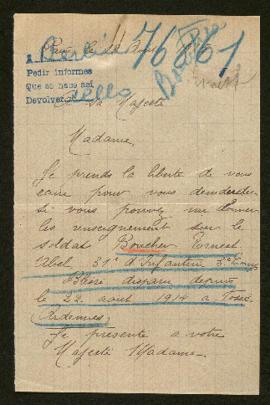 76861
Pedir informes
Que se haga así
Devolver
A Sa Majesté
Madame
Je prends la liberté de vous
écrire pour vous demander
si vous pouvez me donner
les renseignement sur le
soldat Boucher Ernest
Abel 31e d'Infanterie
disparu depuis
le 22 aout 1914 a
Ardennes
Je présente a votre
Majesté Madame